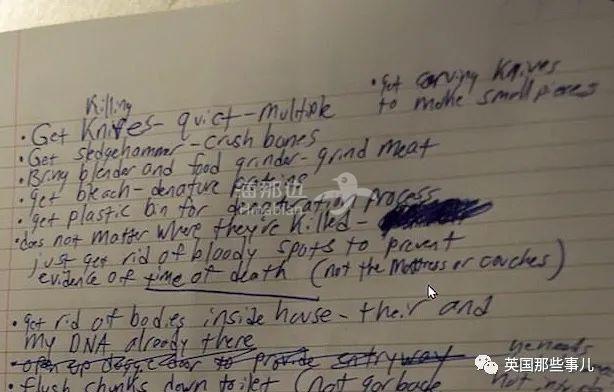 Killing
• Get Knives - quiet - multiple
• get carving knives
to make small pieces
• Get sledgehammer - crush bones
• Bring blender and food grinder - grind meat
• get bleach - denature proteins
• get plastic bin for denaturation process
• does not matter where they're killed -
just get rid of bloody spots to prevent
evidence of time of death (not the mattress or couches)
• get rid of bodies inside house - their and
my DNA already there
• open up doggie door to provide entryway
he needs
• flush chunks down toilet (not garbage
not
海那边
hinabian
英国那些事儿